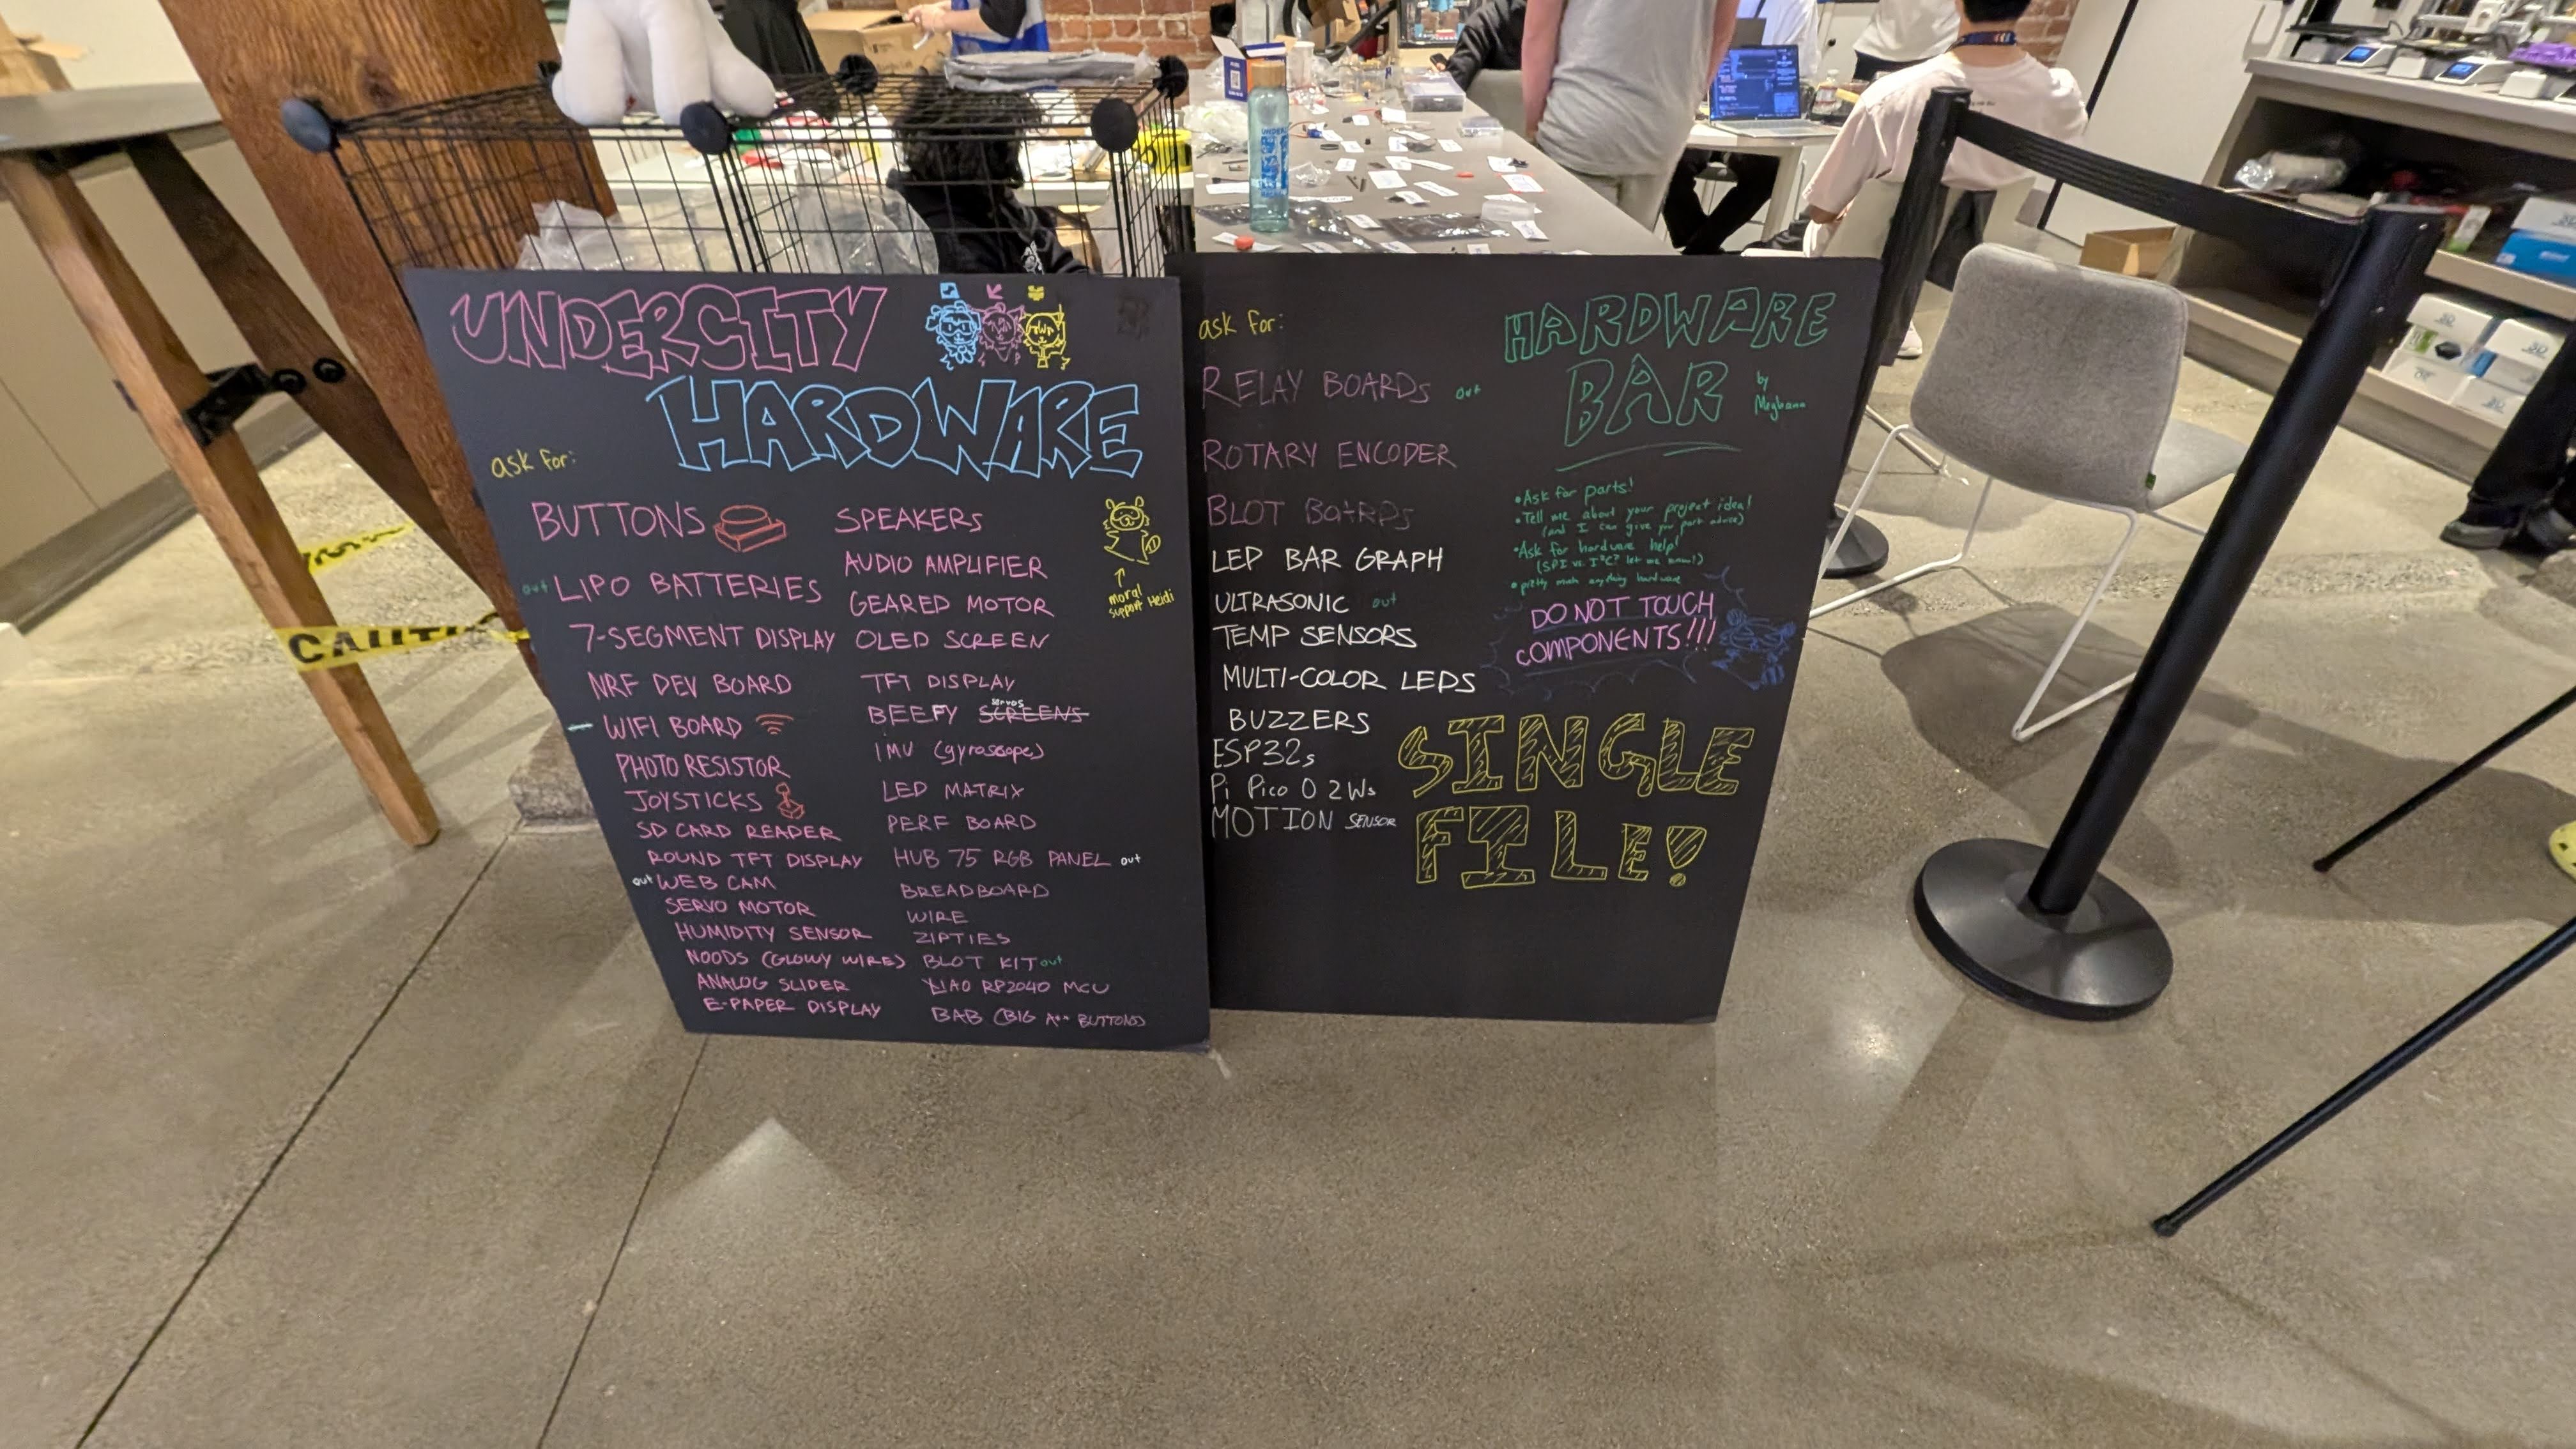 UNDERCITY
HARDWARE
ask for:
BUTTONS
out LIPO BATTERIES
7-SEGMENT DISPLAY
NRF DEV BOARD
WIFI BOARD
PHOTO RESISTOR
JOYSTICKS
SD CARD READER
ROUND TFT DISPLAY
out WEB CAM
SERVO MOTOR
HUMIDITY SENSOR
NOODS (GLOWY WIRE)
ANALOG SLIDER
E-PAPER DISPLAY
SPEAKERS
AUDIO AMPLIFIER
GEARED MOTOR
OLED SCREEN
TFT DISPLAY
servos
BEEFY SCREENS
IMU (gyroscope)
LED MATRIX
PERF BOARD
HUB 75 RGB PANEL out
BREADBOARD
WIRE
ZIPTIES
BLOT KIT out
XIAO RP2040 MCU
BAB (BIG A** BUTTONS)
moral
support Heidi
ask for:
RELAY BOARDS out
ROTARY ENCODER
BLOT BOARDS
LED BAR GRAPH
ULTRASONIC out
TEMP SENSORS
MULTI-COLOR LEDS
BUZZERS
ESP32s
Pi Pico 0 2Ws
MOTION SENSOR
HARDWARE
BAR
by
Meghana
•Ask for parts!
•Tell me about your project idea!
(and I can give you part advice)
•Ask for hardware help!
(SPI vs. I²C? let me know!)
•pretty much anything hardware
DO NOT TOUCH
COMPONENTS!!!
SINGLE
FILE!
CAUTI